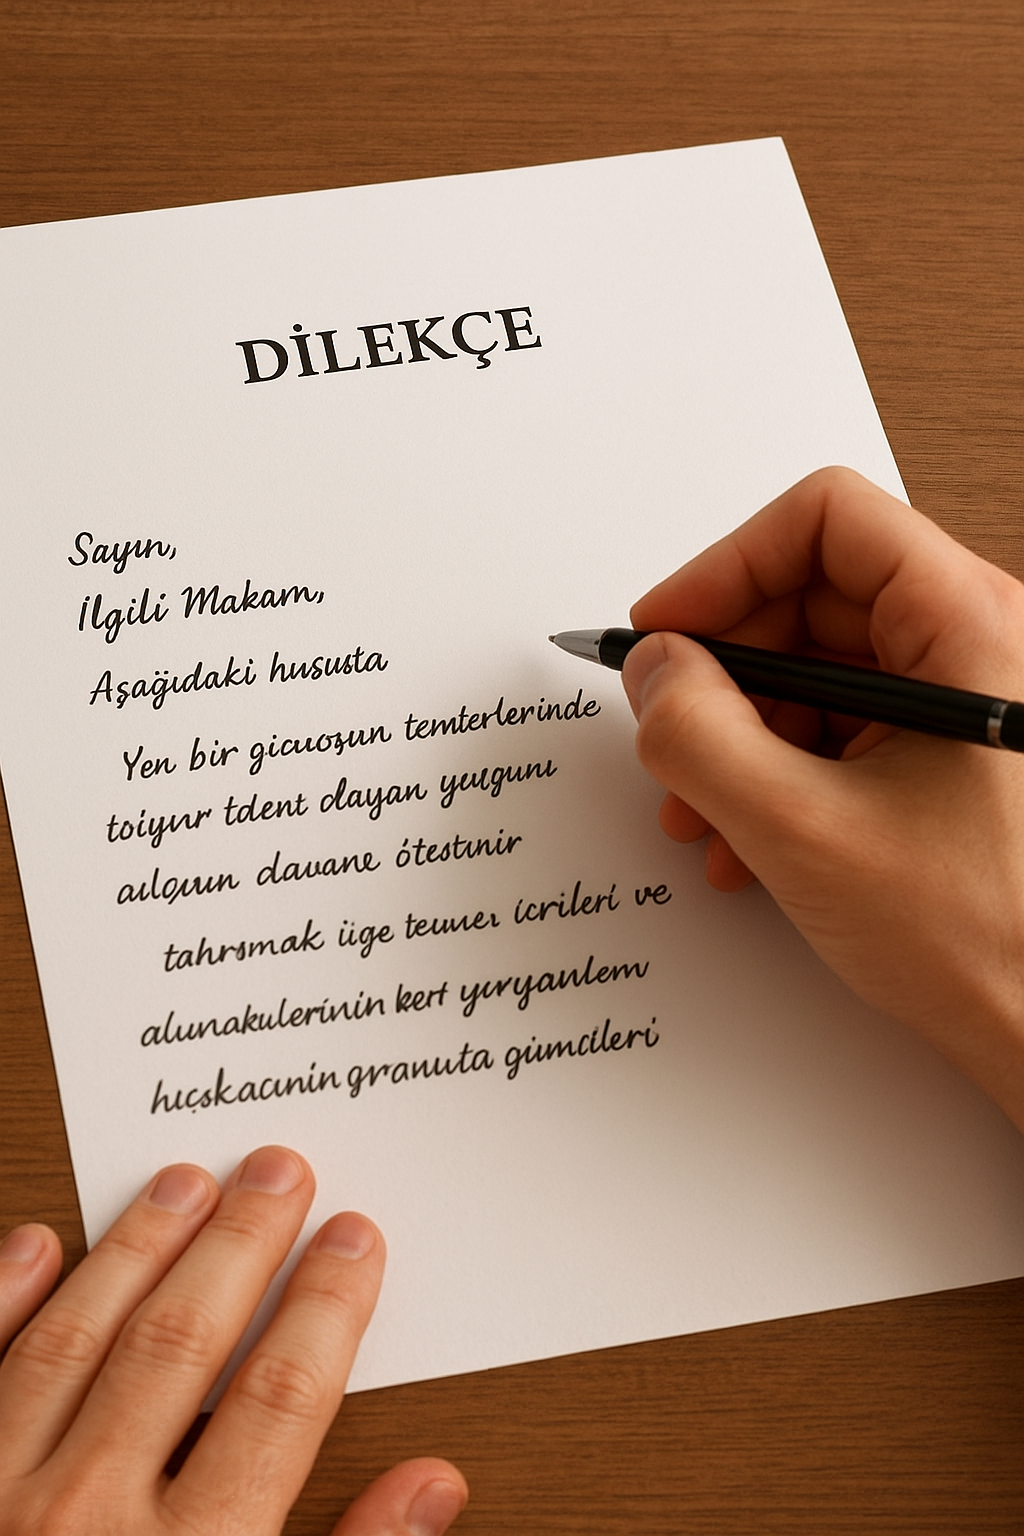 DİLEKÇE
Sayın,
İlgili Makam,
Aşağıdaki hususta
Yen bir gicuoşun temterlerinde
toiyur tdent dayan yuıgunı
aıloyun davane ótestınir
tahrsmak üge teuner icrileri ve
alunakulerinin kert yırvyanlem
hıçskacınin granuta gümcileri